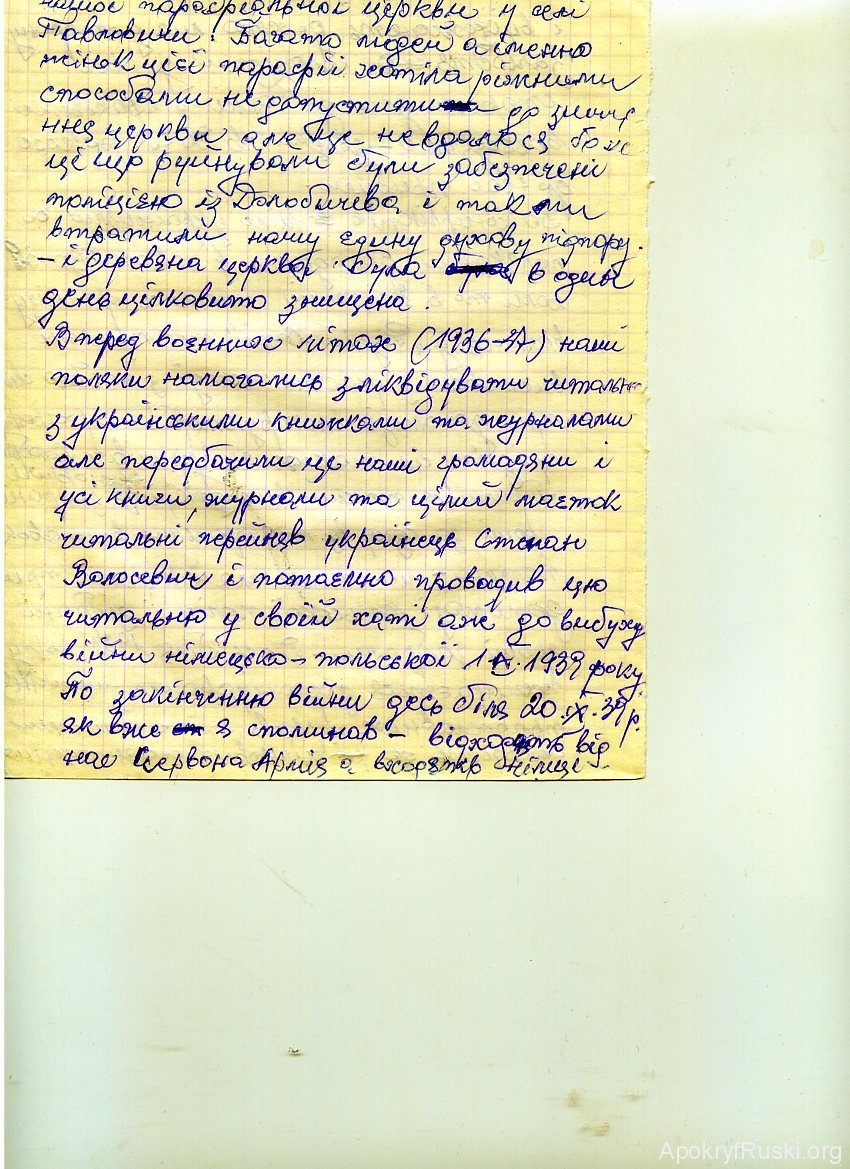 нашої парафіяльної церкви у селі
Павловичи. Багато людей а іменно
жінок цієї парафії хотіла ріжними
способами не допустити до знище-
ння церкви але це не вдалося бо
ці що руйнували були забезпечені
поліцією із Долобичева і так ми
втратили нашу едину духову підпору.
– і деревяна церква була в один
день цілковито знищена.
Вперед военних літах (1936-37) наші
поляки намагались зліквідувати читальн
з українськими книжками та журналами
але передбачили це наші громадяни і
усі книги, журнали та цілий маєток
читальні перейняв українець Степан
Волосевич і потаємно провадив цю
читальню у своїй хаті аж до вибуху
війни німецько-польської 1 IX.1939 року
По закінченню війни десь біля 20.IX.39р.
як вже я споминав – відходять від
нас Червона Армія а входять німці –
ApokryfRuski.org